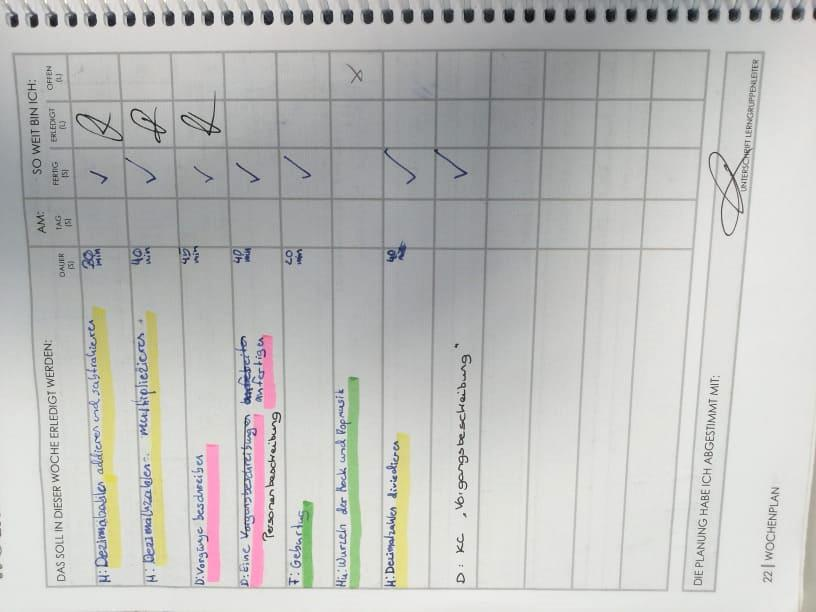 DAS SOLL IN DIESER WOCHE ERLEDIGT WERDEN: AM: SO WEIT BIN ICH:
DAUER (S) TAG (S) FERTIG (S) ERLEDIGT (L) OFFEN (L)
M: Dezimalzahlen addieren und subtrahieren 30 min
M: Dezimalzahlen multipliezieren 40 min
D: Vorgänge beschreiben 45 min
D: Eine Vorgangsbeschreibung anfertigen 40 min
Personenbeschreibung
F: Geburtstag 20 min
Mu: Wurzeln der Rock und Popmusik
M: Dezimalzahlen dividieren 40
D: KC „Vorgangsbeschreibung“
DIE PLANUNG HABE ICH ABGESTIMMT MIT:
UNTERSCHRIFT LERNGRUPPENLEITER
22 | WOCHENPLAN